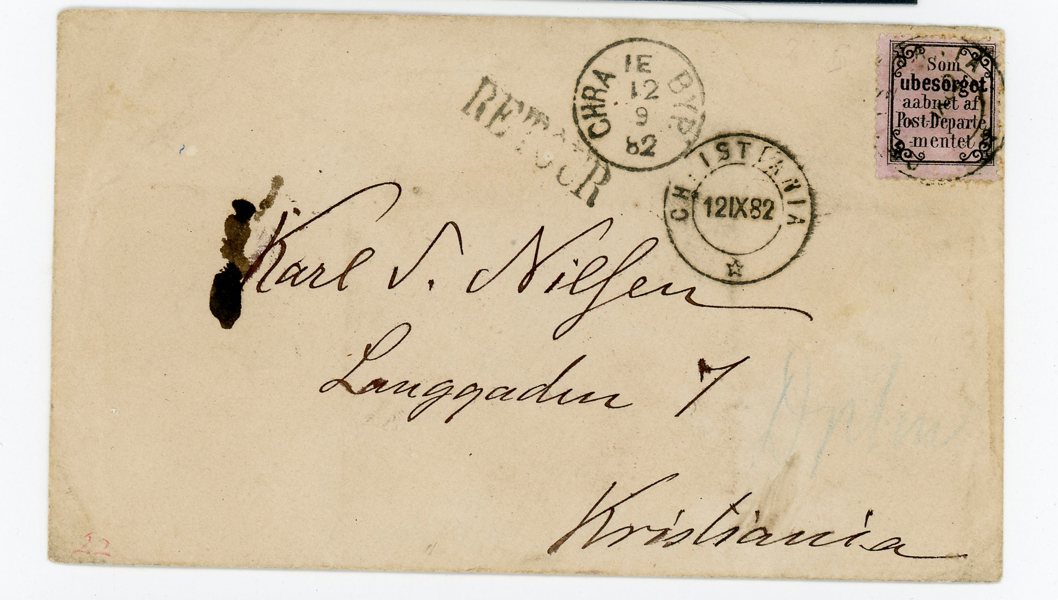 RETOUR
CHRA IE BYP.
12
9
82
CHRISTIANIA
12IX82
Som
ubesørget
aabnet af
Post-Departe
-mentet
Karl S. Nilsen
Langgaden 7
Kristiania
22